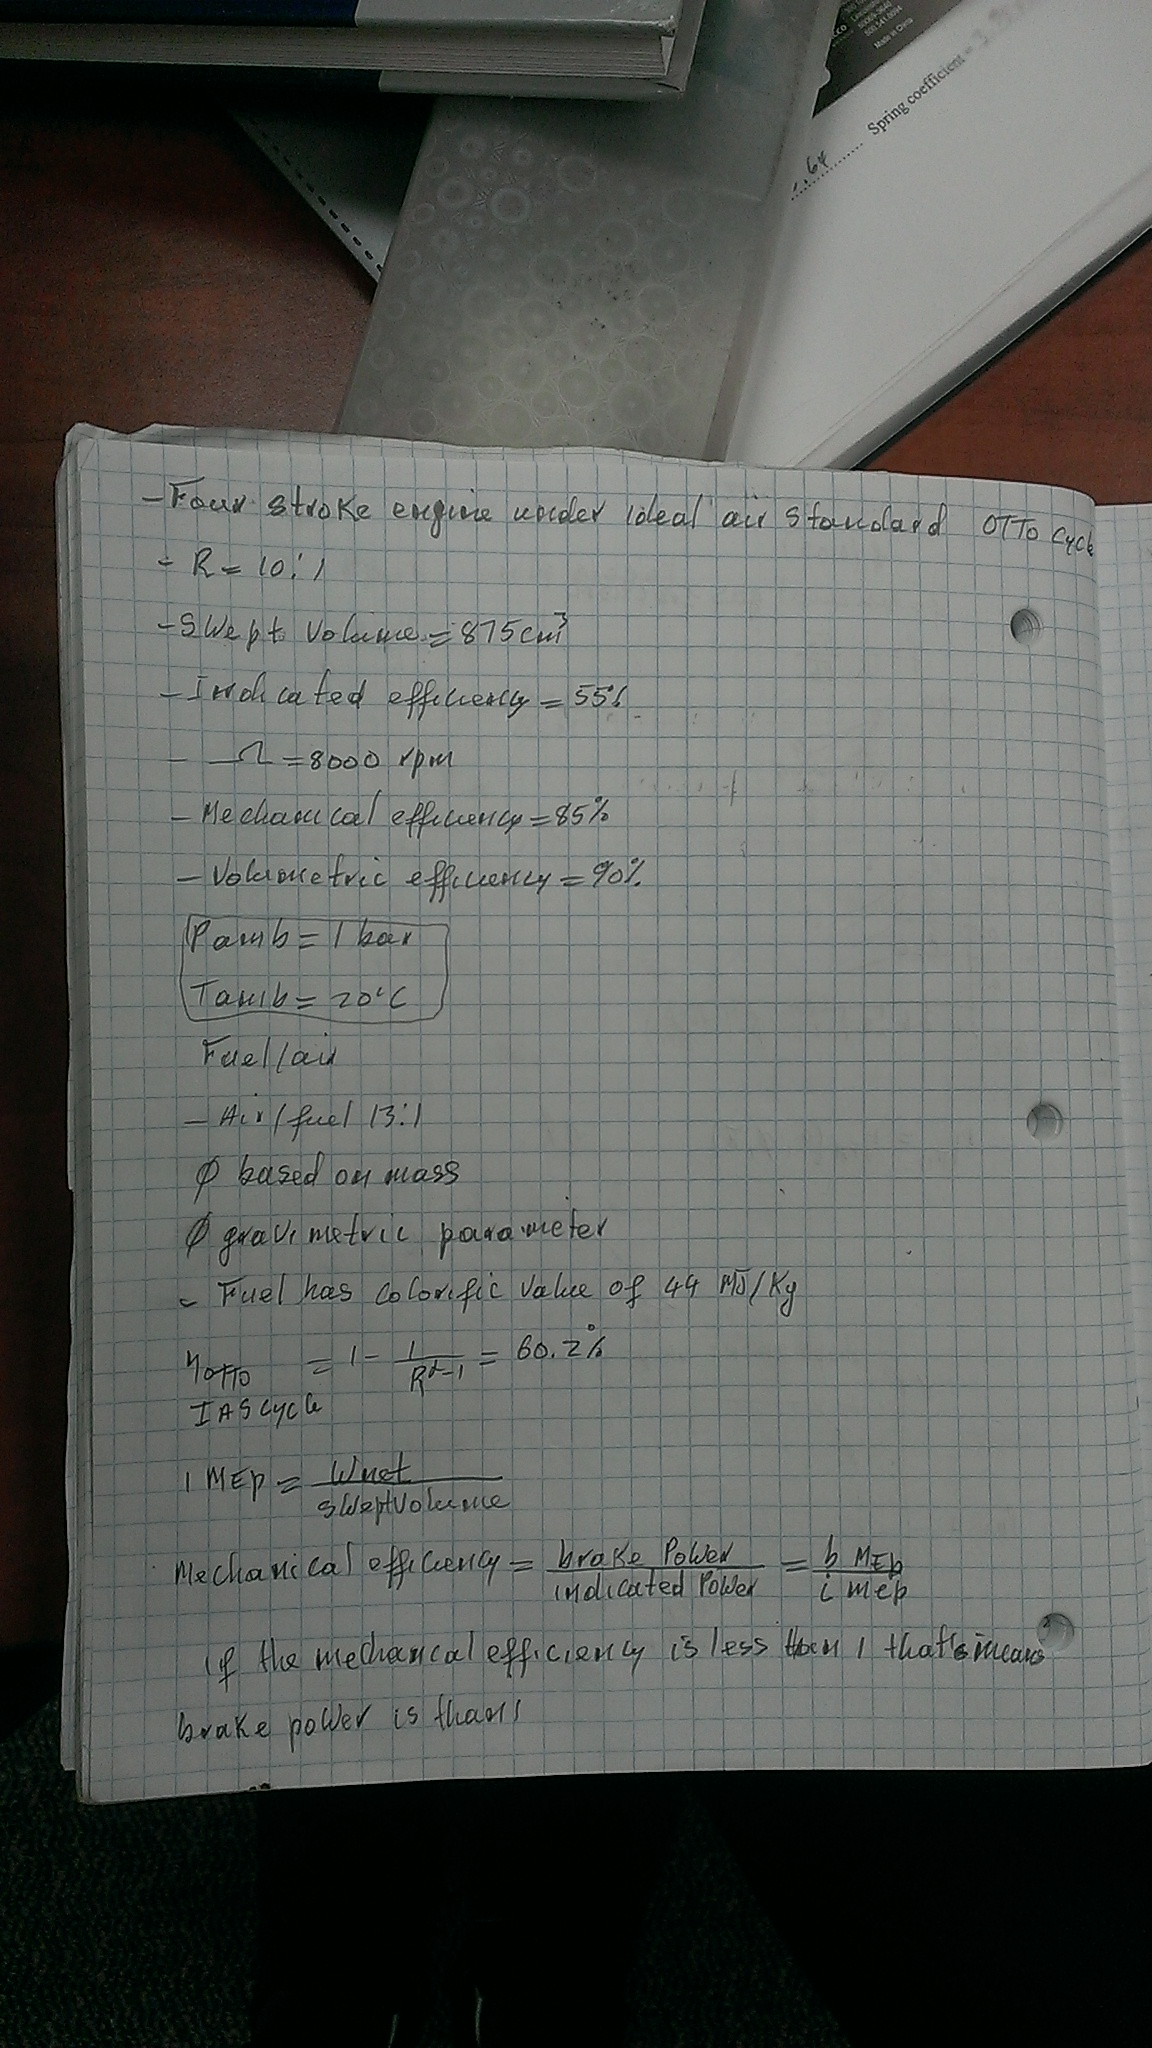 Made in China
Spring coefficient =
- Four stroke engine under ideal air standard OTTO cycle
- R = 10:1
- Swept Volume = 875 cm³
- Indicated efficiency = 55%
- Ω = 8000 rpm
- Mechanical efficiency = 85%
- Volumetric efficiency = 90%
Pamb = 1 bar
Tamb = 20°C
Fuel/air
- Air/fuel 13:1
Ø based on mass
Ø gravimetric parameter
- Fuel has colorific value of 44 MJ/Kg
ηOTTO = 1 - 1/R^(γ-1) = 60.2%
IAS cycle
I MEP = Wnet / swept volume
Mechanical efficiency = brake Power / indicated Power = b MEP / i mep
if the mechancal efficiency is less then 1 that's means
brake power is